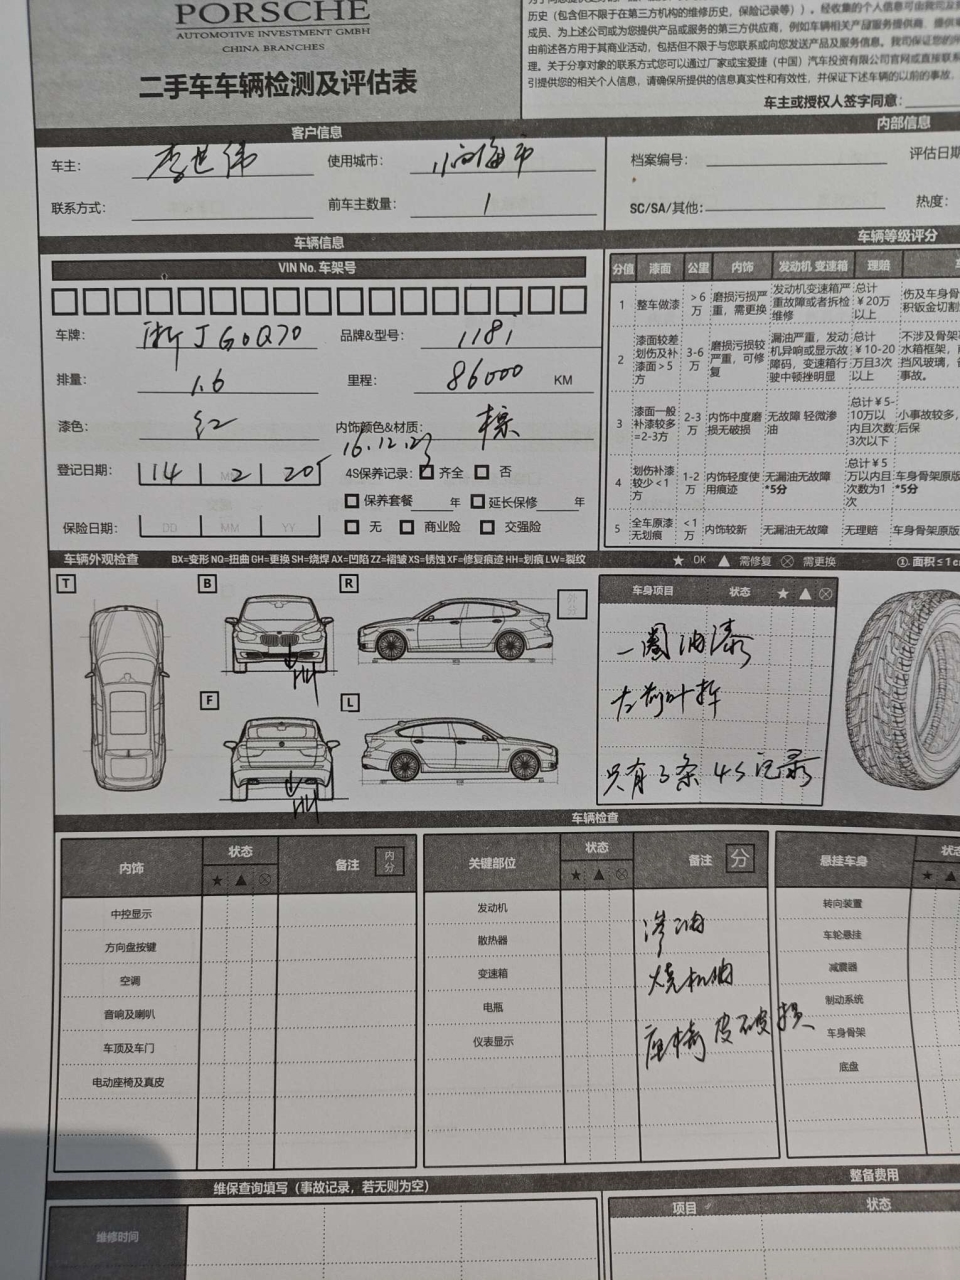 PORSCHE
AUTOMOTIVE INVESTMENT GMBH
CHINA BRANCHES
二手车车辆检测及评估表
历史（包含但不限于在第三方机构的维修历史，保险记录等））。经收集的个人信息可由我司及
成员、为上述公司或为您提供产品或服务的第三方供应商，例如车辆相关产品服务提供商、提供
由前述各方用于其商业活动，包括但不限于与您联系或向您发送产品及服务信息。我司保证您的
理。关于分享对象的联系方式您可以通过厂家或宝爱捷（中国）汽车投资有限公司官网或直接联系
引提供您的相关个人信息，请确保所提供的信息真实性和有效性，并保证下述车辆的以前的事故，
车主或授权人签字同意：
客户信息
内部信息
车主： 李世伟 使用城市： 临海市
档案编号： 评估日期
联系方式： 前车主数量： 1
SC/SA/其他： 热度：
车辆信息
车辆等级评分
VIN No. 车架号
分值 漆面 公里 内饰 发动机 变速箱 理赔
1 整车做漆 ＞6万 磨损污损严重，需更换 发动机变速箱严重故障或者拆检维修 总计￥20万以上 伤及车身骨 积钣金切割
2 漆面较差划伤及补漆面＞5方 3-6万 磨损污损较严重，可修复 漏油严重，发动机异响或显示故障码，变速箱行驶中顿挫明显 总计￥10-20万且3次以上 不涉及骨架 水箱框架，前 挡风玻璃， 事故。
3 漆面一般补漆较多=2-3方 2-3万 内饰中度磨损无破损 无故障 轻微渗油 总计￥5-10万以内且次数3次以下 小事故较多， 后保
4 划伤补漆较少＜1方 1-2万 内饰轻度使用痕迹 无漏油无故障 *5分 总计￥5万以内且次数为1次 车身骨架原版 *5分
5 全车原漆无划痕 ＜1万 内饰较新 无漏油无故障 无理赔 车身骨架原版
车牌： 浙JG0Q70 品牌&型号： 118i
排量： 1.6 里程： 86000 KM
漆色： 红 内饰颜色&材质： 棕
16.12.23
登记日期： 14 2 20 4S保养记录： 齐全 否
保养套餐 年 延长保修 年
保险日期： DD MM YY 无 商业险 交强险
车辆外观检查 BX=变形 NQ=扭曲 GH=更换 SH=烧焊 AX=凹陷 ZZ=褶皱 XS=锈蚀 XF=修复痕迹 HH=划痕 LW=裂纹
★ OK ▲ 需修复 ⊗ 需更换 ①. 面积≤1c
T B R
外分
车身项目 状态 ★ ▲ ⊗
HH
一圈油漆
左前叶拆
F L
HH
只有3条4S记录
车辆检查
内饰 状态 备注 内分
★ ▲ ⊗
关键部位 状态 备注 分
★ ▲ ⊗
悬挂车身 状态
★ ▲
中控显示 发动机 转向装置
方向盘按键 散热器 渗油 车轮悬挂
空调 变速箱 烧机油 减震器
音响及喇叭 电瓶 制动系统
车顶及车门 仪表显示 座椅皮破损 车身骨架
电动座椅及真皮 底盘
维保查询填写（事故记录，若无则为空）
整备费用
维修时间
项目 状态